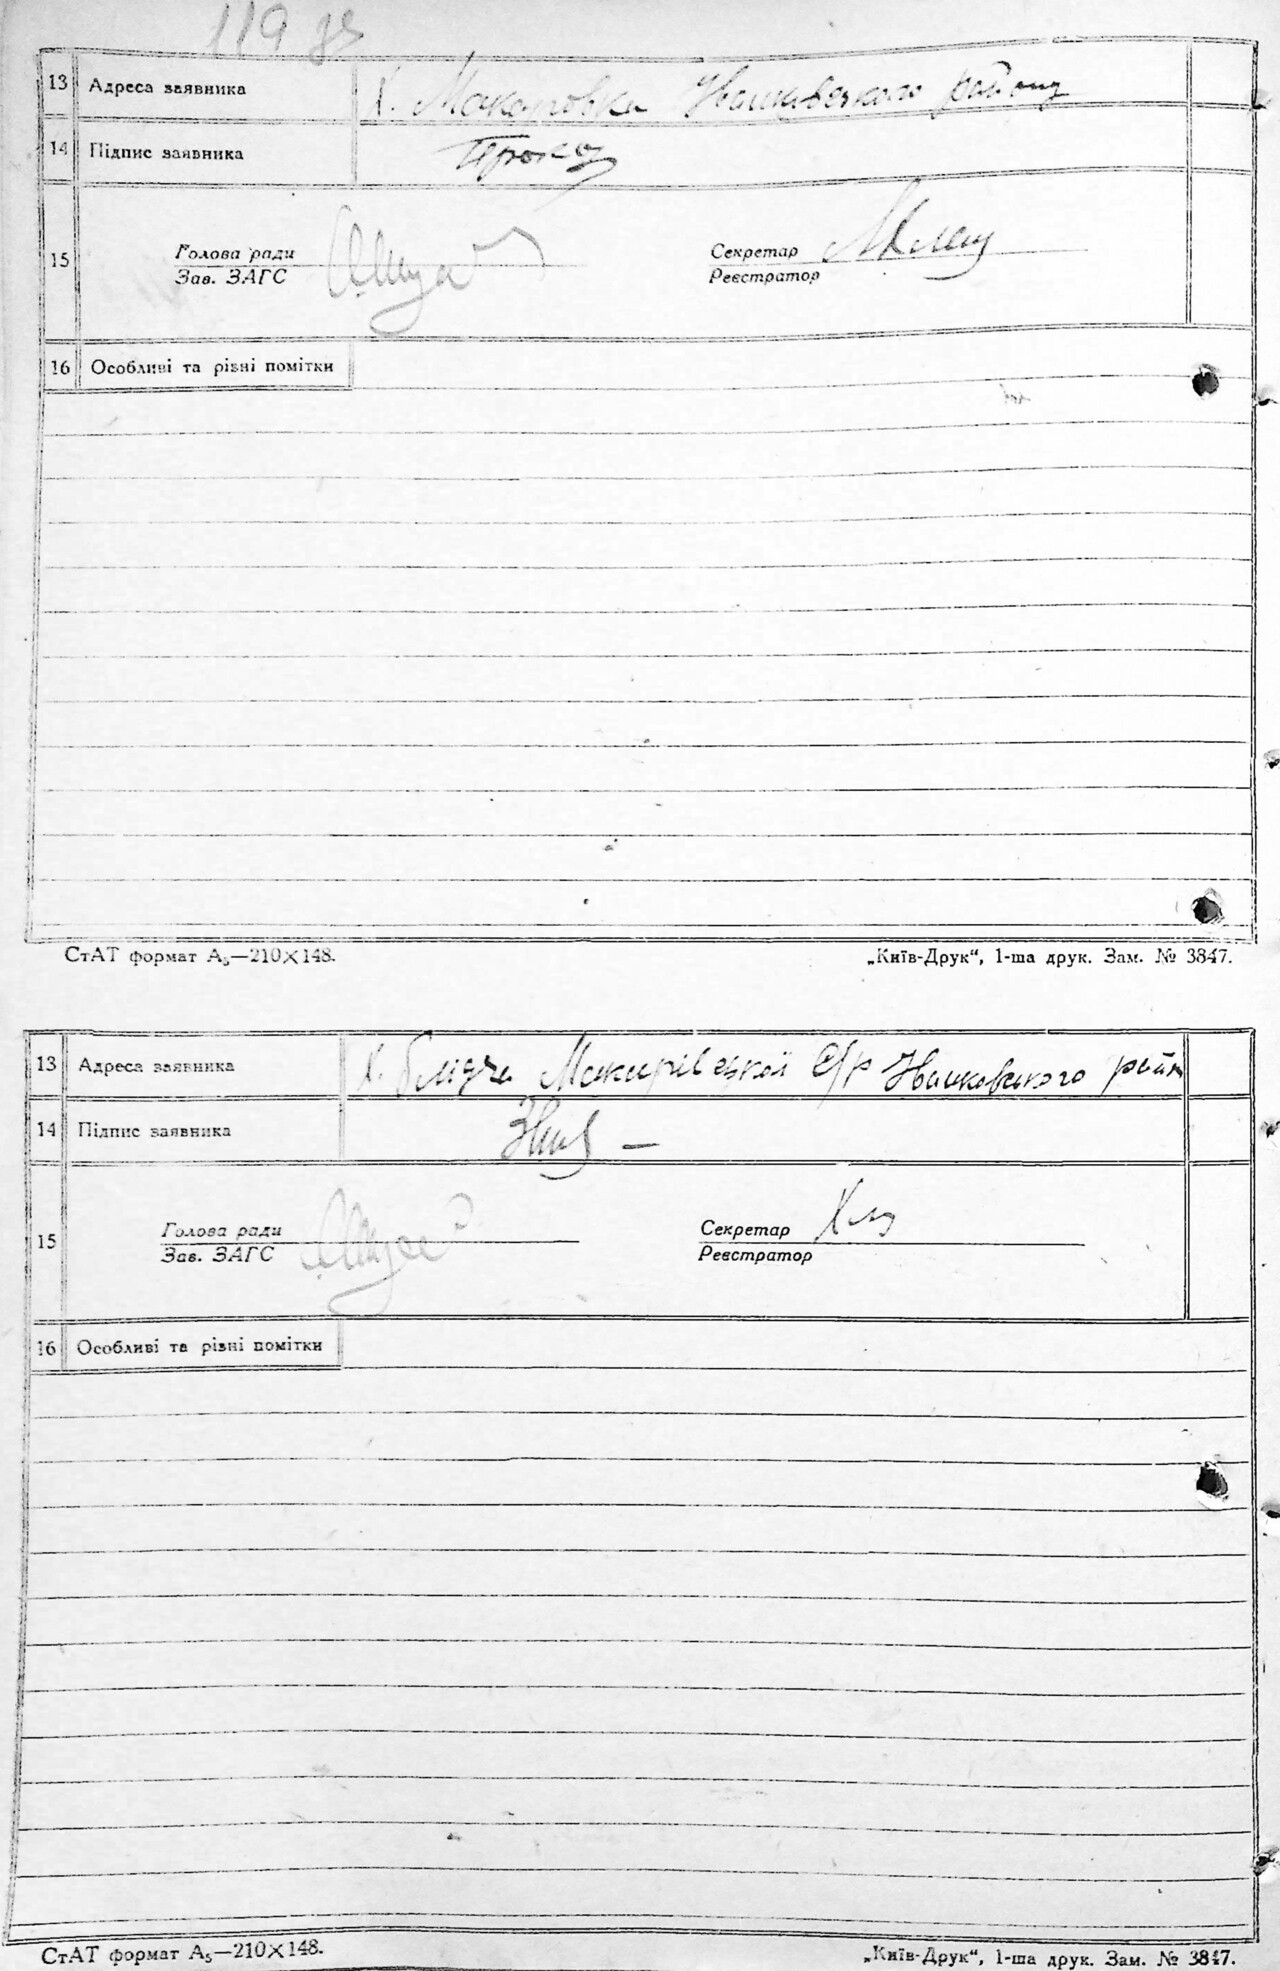 119 зв
13 Адреса заявника х. Макаровка Івашківського району
14 Підпис заявника
15 Голова ради Секретар
Зав. ЗАГС Реєстратор
16 Особливі та різні помітки
СтАТ формат А₅—210×148. „Київ-Друк“, 1-ша друк. Зам. № 3847.
13 Адреса заявника х. Макарівської с/р району
14 Підпис заявника
15 Голова ради Секретар
Зав. ЗАГС Реєстратор
16 Особливі та різні помітки
СтАТ формат А₅—210×148. „Київ-Друк“, 1-ша друк. Зам. № 3847.